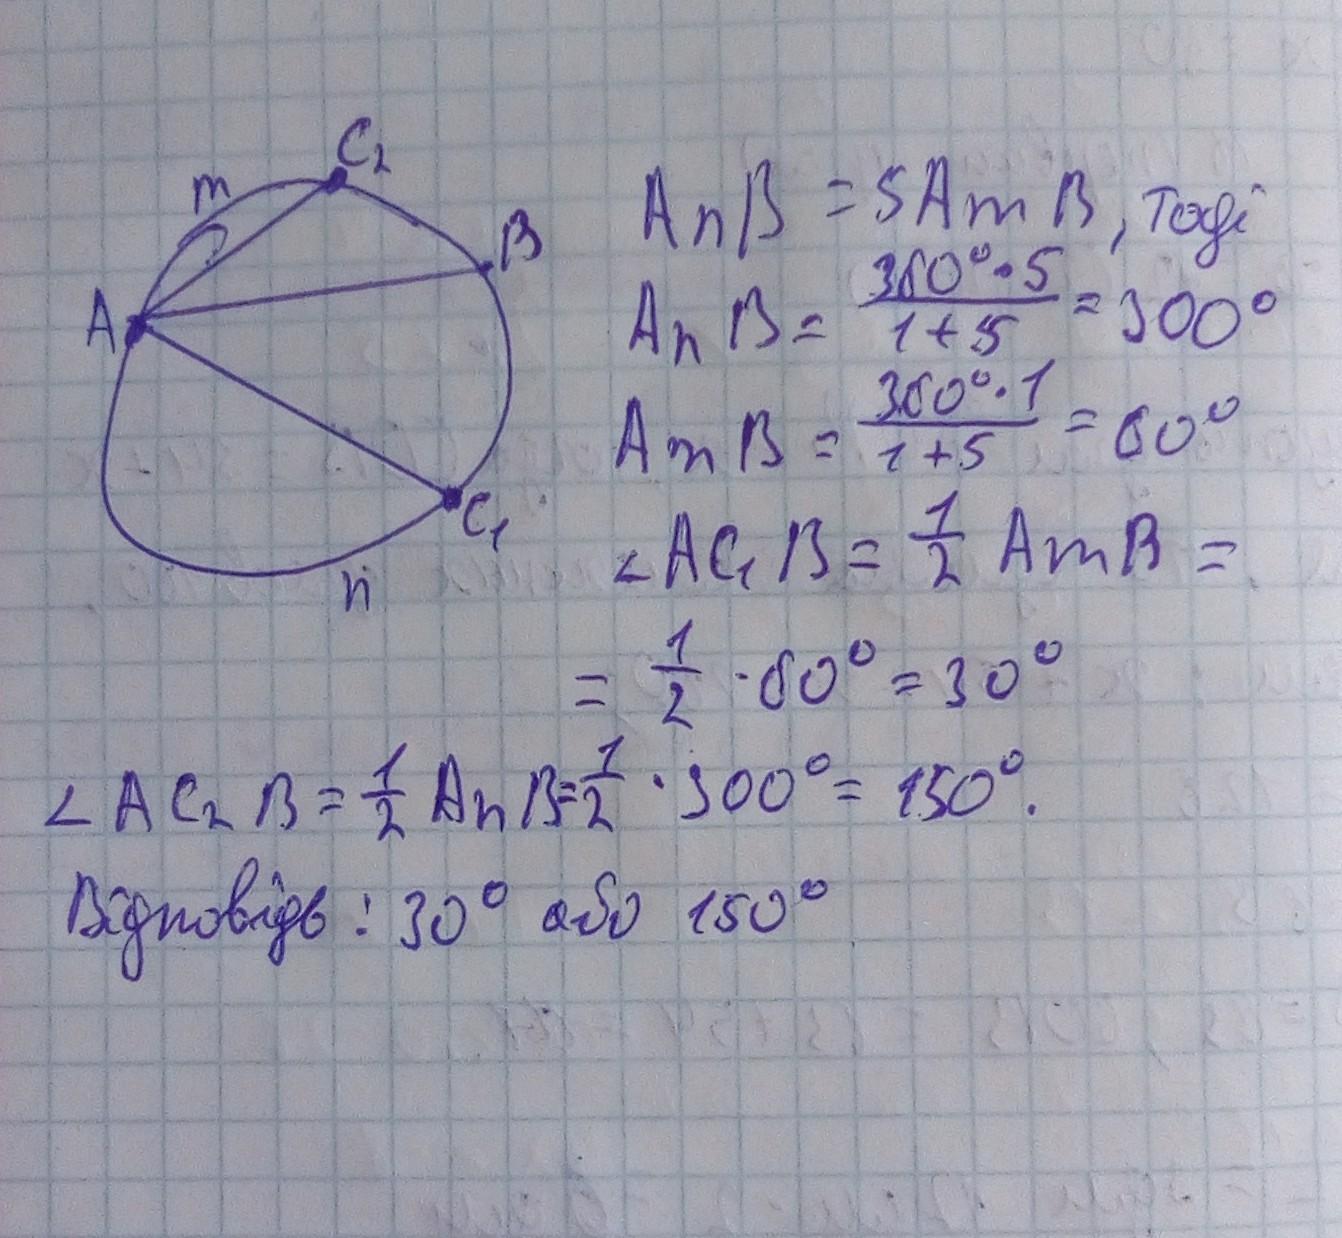 C₂
m
B
A
C₁
n
AnB = 5AmB, тоді
AnB = 360°·5 / 1+5 = 300°
AmB = 360°·1 / 1+5 = 60°
∠AC₁B = 1/2 AmB =
= 1/2 · 60° = 30°
∠AC₂B = 1/2 AnB = 1/2 · 300° = 150°.
Відповідь: 30° або 150°